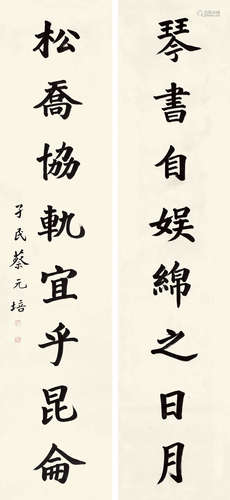 琴書自娱綿之日月
松喬協軌宜乎昆侖
孑民蔡元培